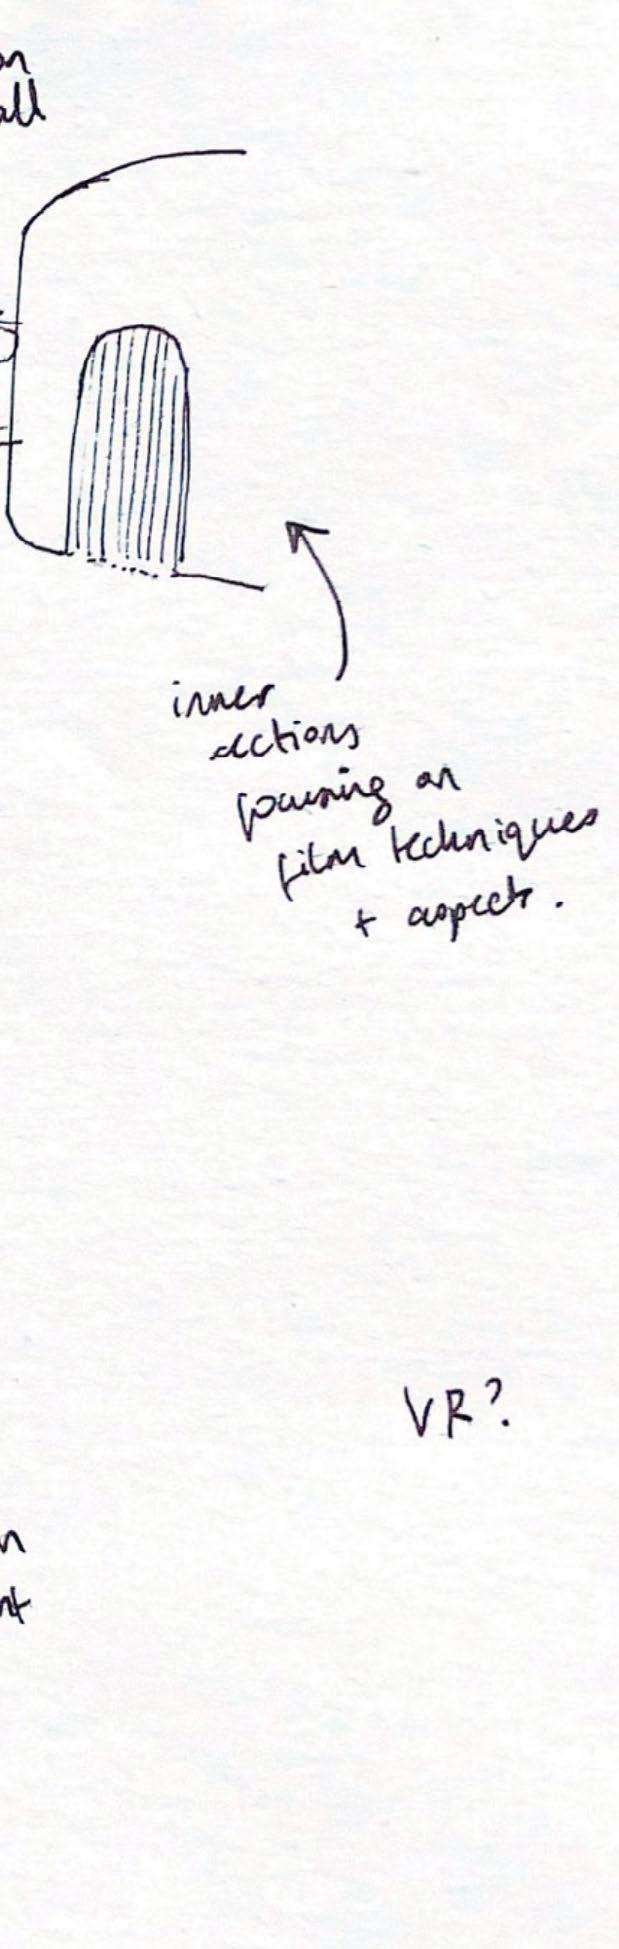 on
all
inner
sections
focusing on
film techniques
+ aspects.
VR?
n
nt